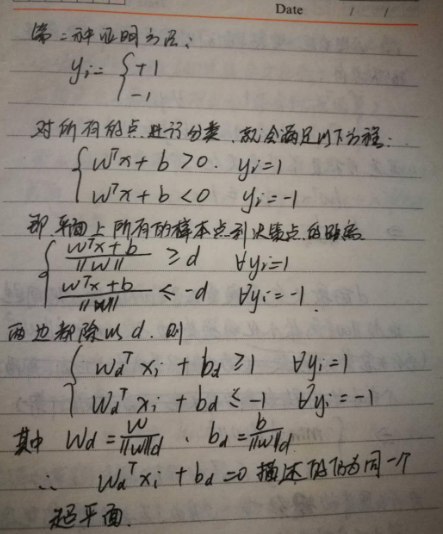 Date / /
第二种证明方法:
yᵢ = { +1
-1
对所有的点进行分类,就会满足以下方程:
{ wᵀx + b > 0. yᵢ=1
wᵀx + b < 0 yᵢ=-1
即平面上所有的样本点到决策点的距离
{ (wᵀx + b)/‖w‖ ≥ d ∀yᵢ=1
(wᵀx + b)/‖w‖ ≤ -d ∀yᵢ=-1.
两边都除以 d. 则
{ W_dᵀ xᵢ + b_d ≥ 1 ∀yᵢ=1
W_dᵀ xᵢ + b_d ≤ -1 ∀yᵢ=-1
其中 W_d = w/(‖w‖d) , b_d = b/(‖w‖d)
∴ W_dᵀ xᵢ + b_d = 0 描述的仍为同一个
超平面.